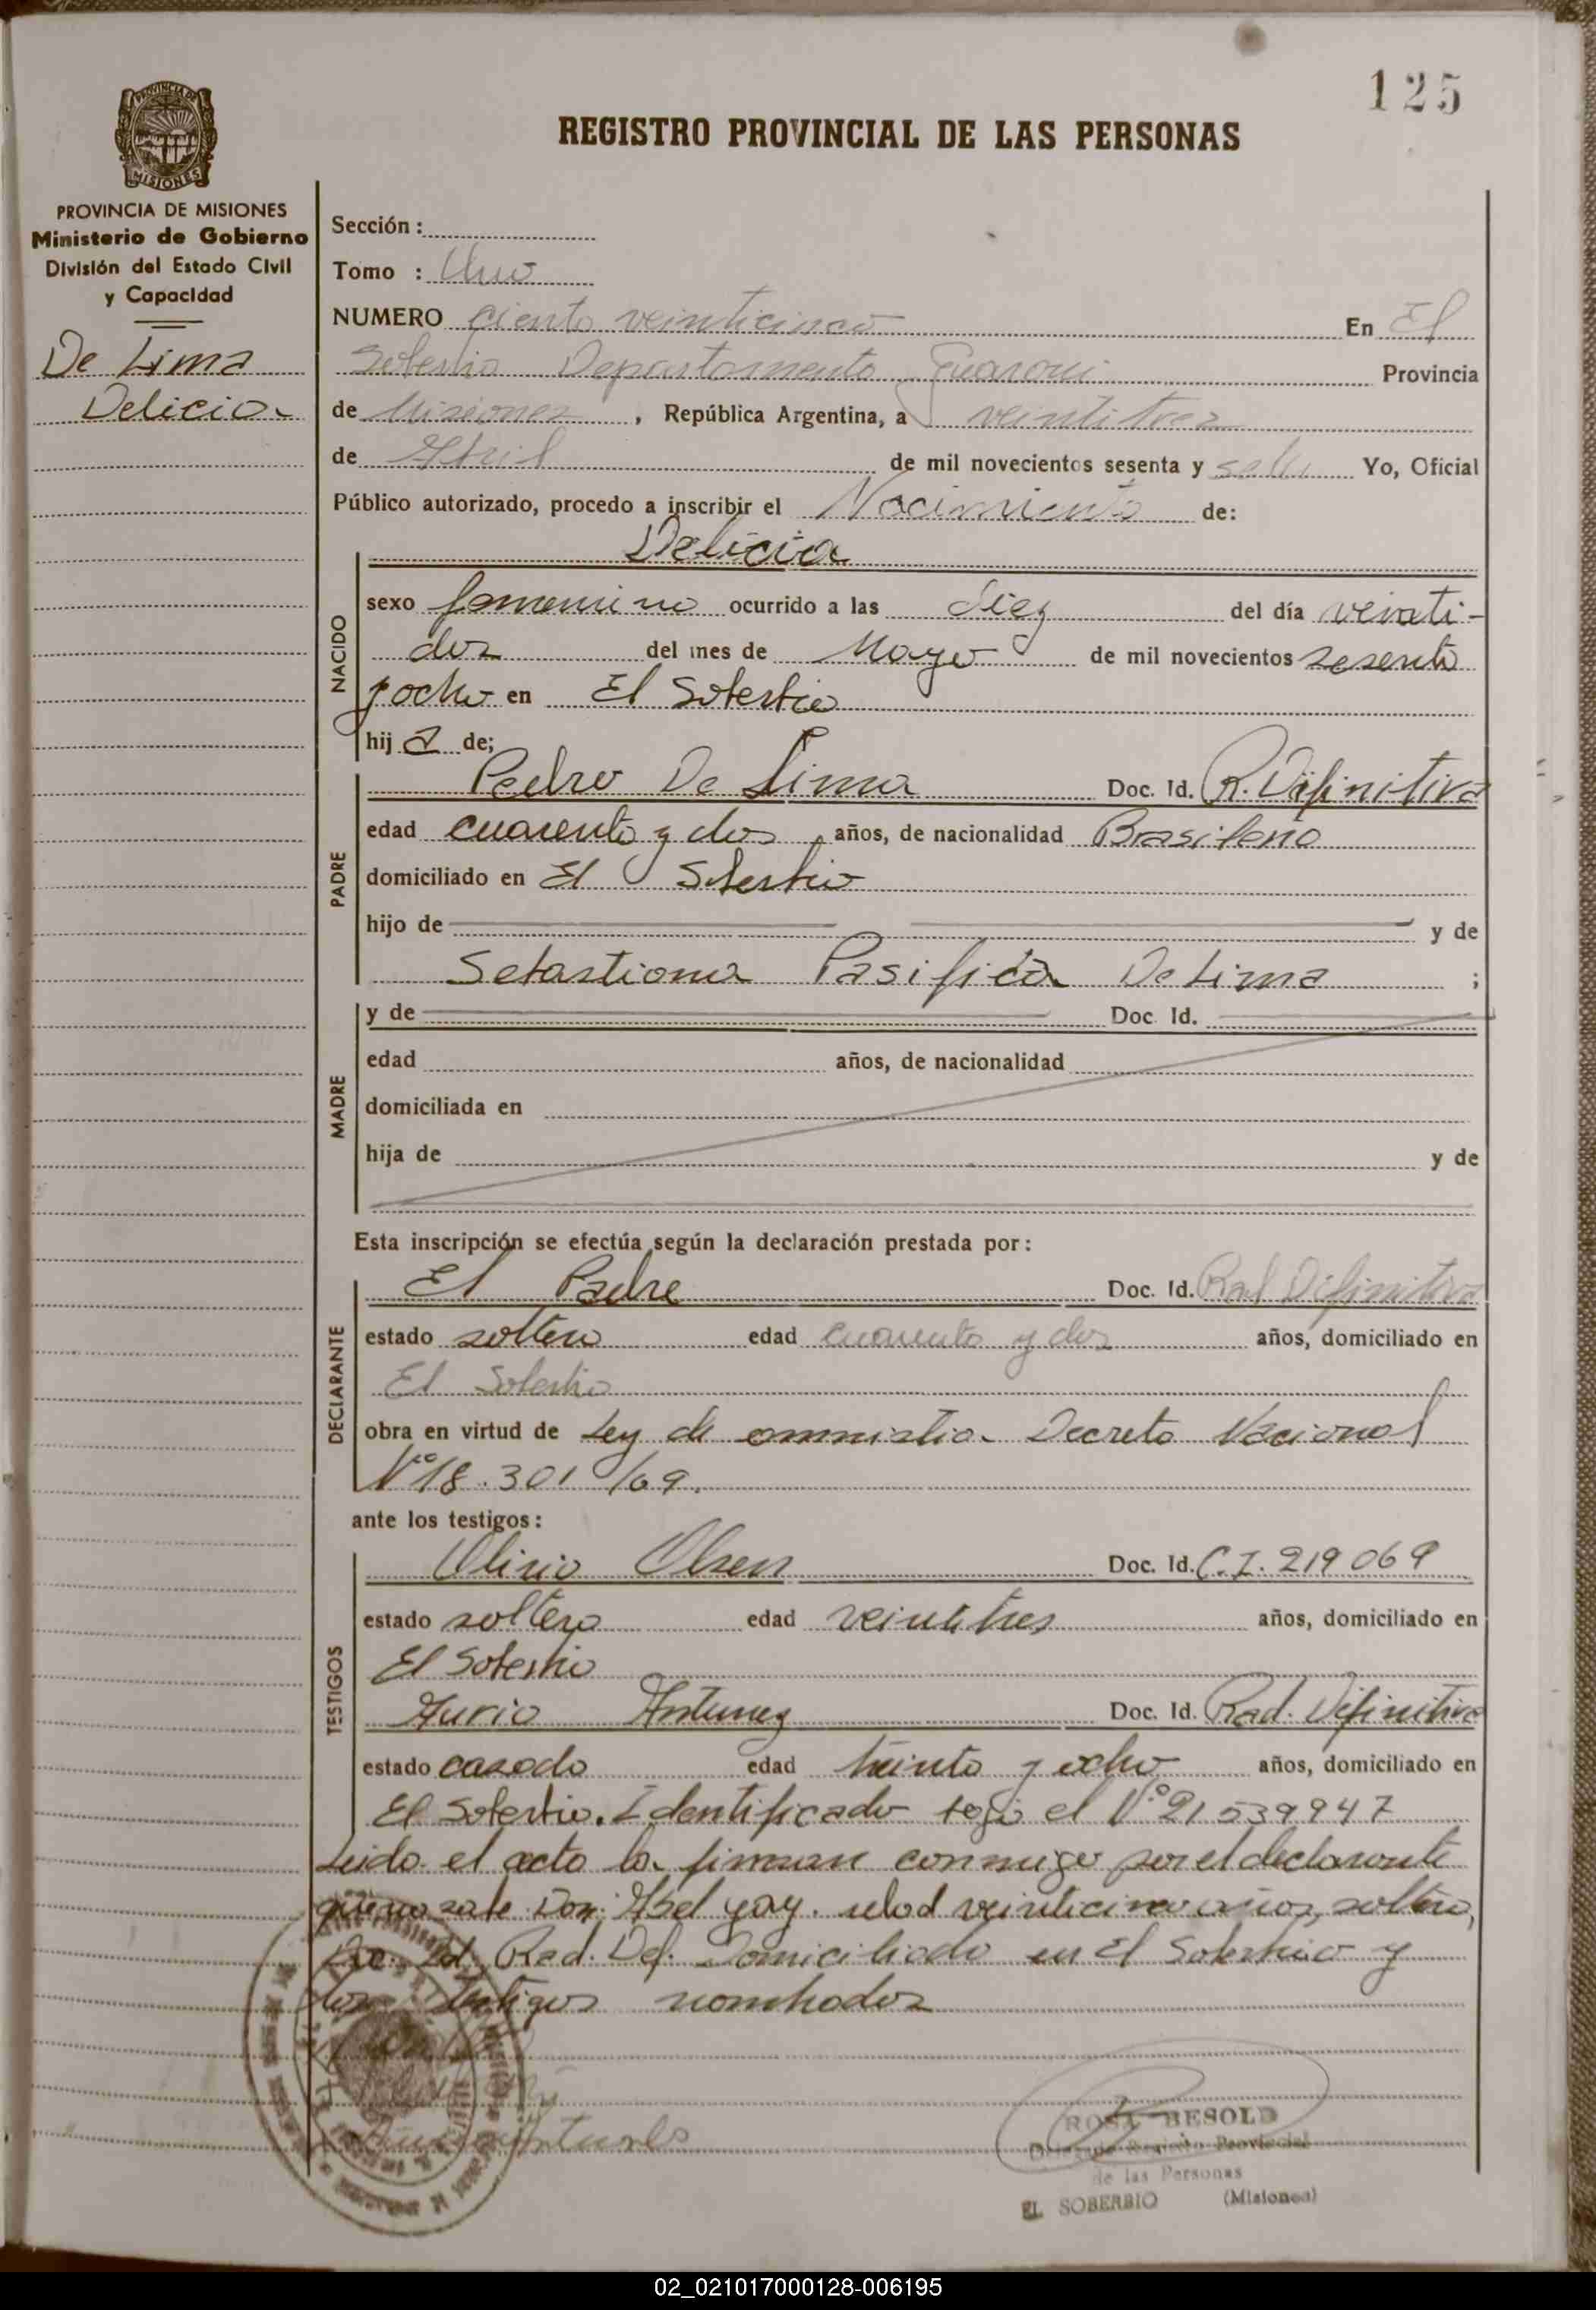 125
REGISTRO PROVINCIAL DE LAS PERSONAS
PROVINCIA DE
MISIONES
PROVINCIA DE MISIONES
Ministerio de Gobierno
División del Estado Civil
y Capacidad
De Lima
Delicia
Sección :
Tomo : Uno
NUMERO ciento veinticinco En El
Soberbio Departamento Guarani Provincia
de Misiones , República Argentina, a veintitres
de Abril de mil novecientos sesenta y Yo, Oficial
Público autorizado, procedo a inscribir el Nacimiento de:
Delicia
NACIDO
sexo femenino ocurrido a las diez del día veinti-
dos del mes de Mayo de mil novecientos sesenta
y ocho en El Soberbio
hij a de;
PADRE
Pedro De Lima Doc. Id. R. Difinitiva
edad cuarenta y dos años, de nacionalidad Brasileno
domiciliado en El Soberbio
hijo de y de
Sebastiana Pasifica De Lima ;
MADRE
y de Doc. Id.
edad años, de nacionalidad
domiciliada en
hija de y de
Esta inscripción se efectúa según la declaración prestada por :
DECLARANTE
El Padre Doc. Id. Rad Difinitiva
estado soltero edad cuarenta y dos años, domiciliado en
El Soberbio
obra en virtud de Ley de amnistia Decreto Nacional
Nº 18.301/69.
ante los testigos :
TESTIGOS
Olirio Olsen Doc. Id. C.I. 219069
estado soltero edad veintitres años, domiciliado en
El Soberbio
Aurio Antunez Doc. Id. Rad. Difinitiva
estado casado edad treinta y ocho años, domiciliado en
El Soberbio. Identificado bajo el Nº 21539947
Leido el acta la firman conmigo por el declarante
que no sabe Don: Abel Gay. edad veinticinco años, soltero,
Doc. Id. Rad. Def. Domiciliado en El Soberbio y
los testigos nombrados
Antunes
ROSA BESOLD
Delegado Registro Provincial
de las Personas
EL SOBERBIO (Misiones)
02_021017000128-006195